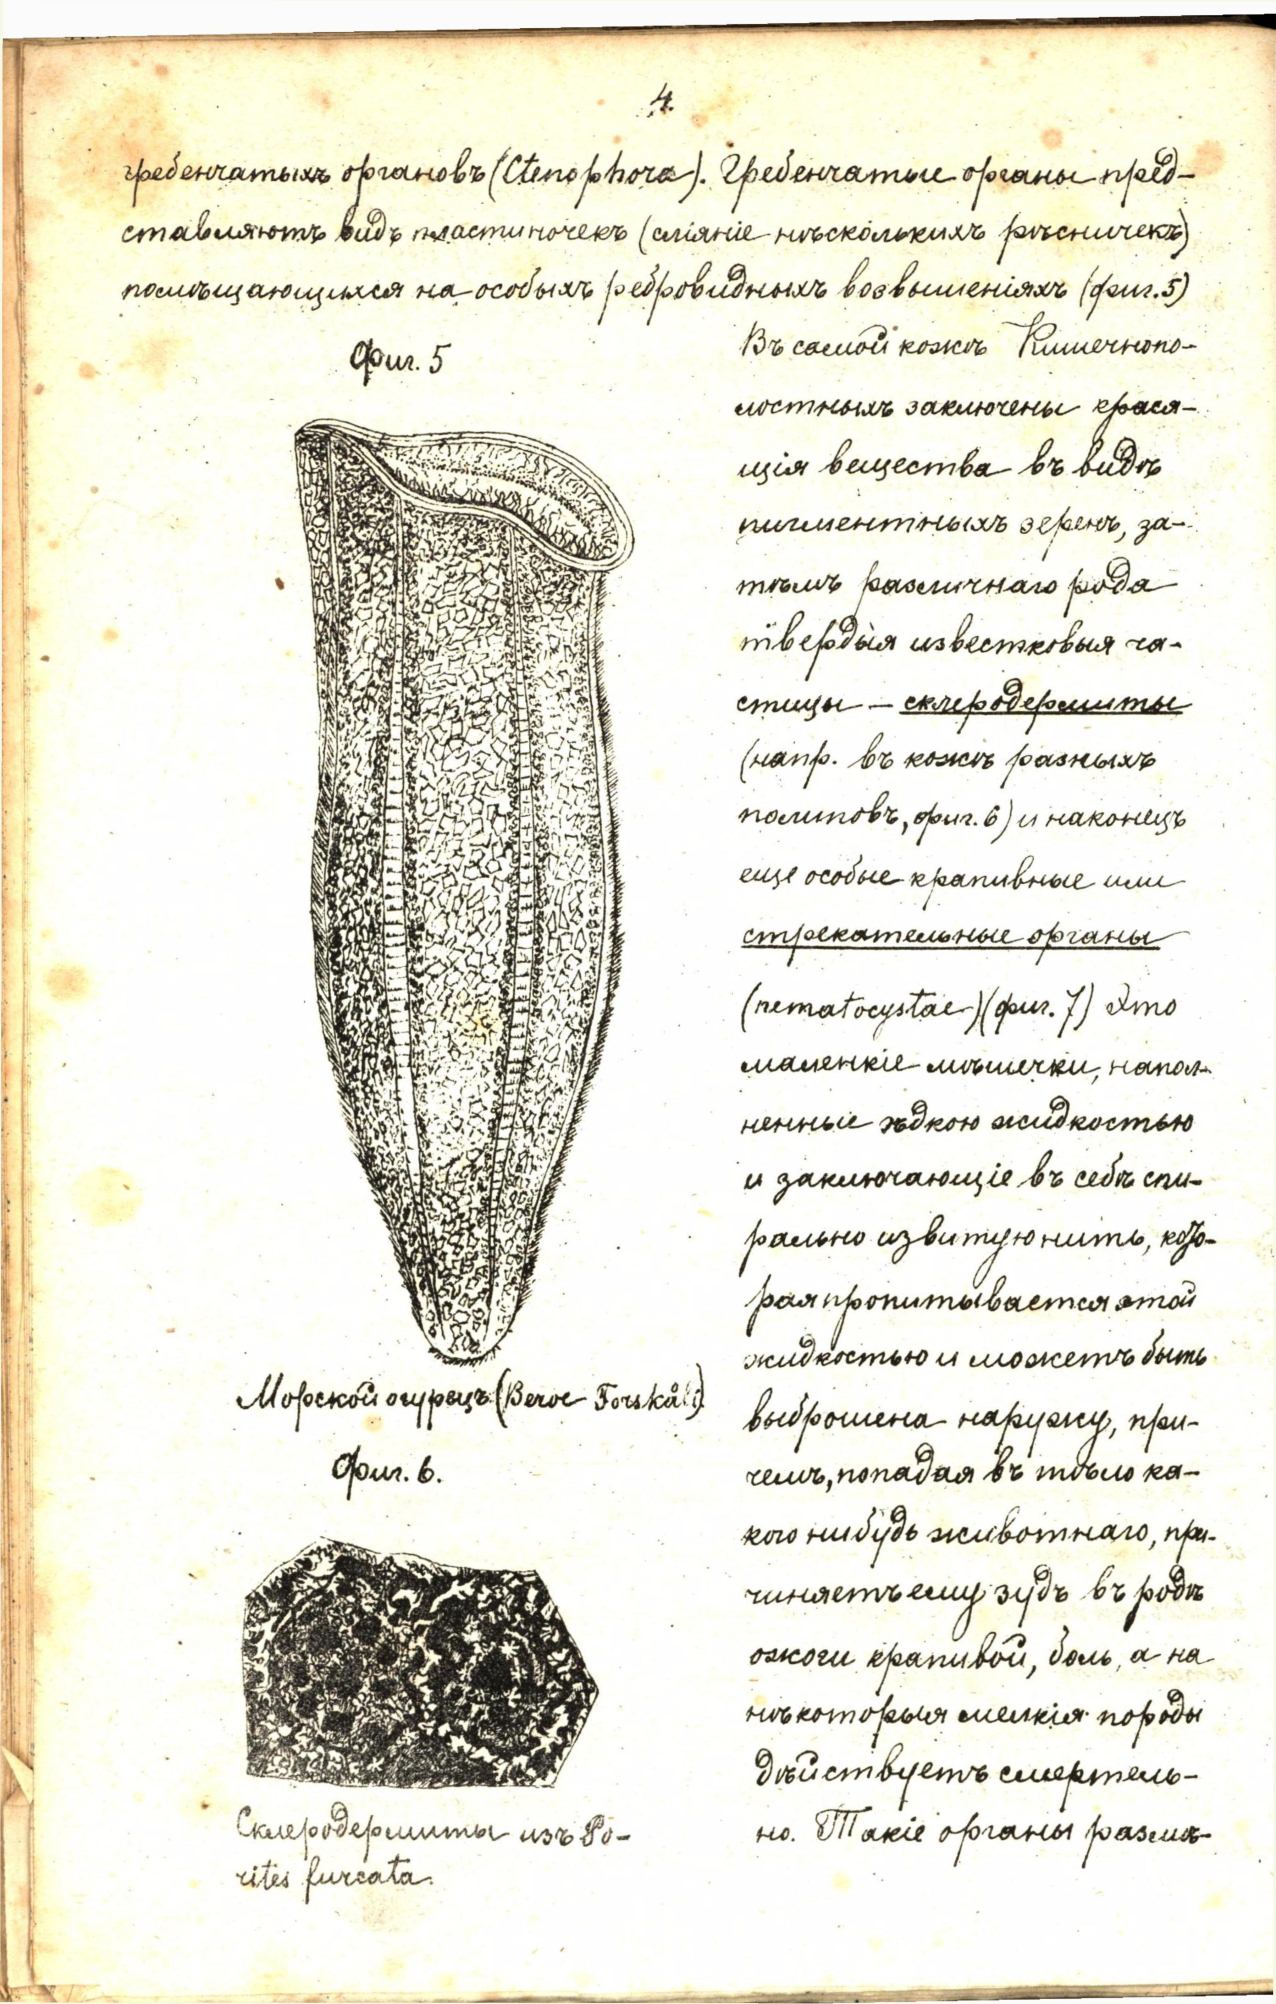 4.
гребенчатыхъ органовъ (Ctenophora). Гребенчатые органы пред-
ставляютъ видъ пластиночекъ (сліяніе нѣсколькихъ рѣсничекъ)
помѣщающихся на особыхъ ребровидныхъ возвышеніяхъ (фиг. 5)
Фиг. 5
Въ самой кожѣ Кишечнопо-
лостныхъ заключены крася-
щія вещества въ видѣ
пигментныхъ зеренъ, за-
тѣмъ различнаго рода
твердыя известковыя ча-
стицы — склеродермиты
(напр. въ кожѣ разныхъ
полиповъ, фиг. 6) и наконецъ
еще особые крапивные или
стрекательные органы
(nematocystae) (фиг. 7) Это
маленкіе мѣшечки, напол-
ненные ѣдкою жидкостью
и заключающіе въ себѣ спи-
рально извитую нить, кото-
рая пропитывается этой
жидкостью и можетъ быть
выброшена наружу, при-
чемъ, попадая въ тѣло ка-
кого нибудь животнаго, при-
чиняетъ ему зудъ въ родѣ
ожоги крапивой, боль, а на
нѣкоторыя мелкія породы
дѣйствуетъ смертель-
но. Такіе органы размѣ-
Морской огурецъ (Beroe Forskåli)
Фиг. 6.
Склеродермиты изъ Po-
rites furcata.